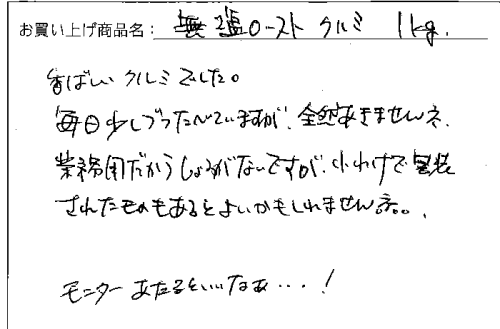 お買い上げ商品名： 無塩ロースト クルミ 1kg.
香ばしいクルミでした。
毎日少しづつたべていますが、全然あきませんネ.
業務用だからしょうがないですが、小わけで包装
されたものもあるとよいかもしれませんネ。.
モニターあたるといいなぁ...!